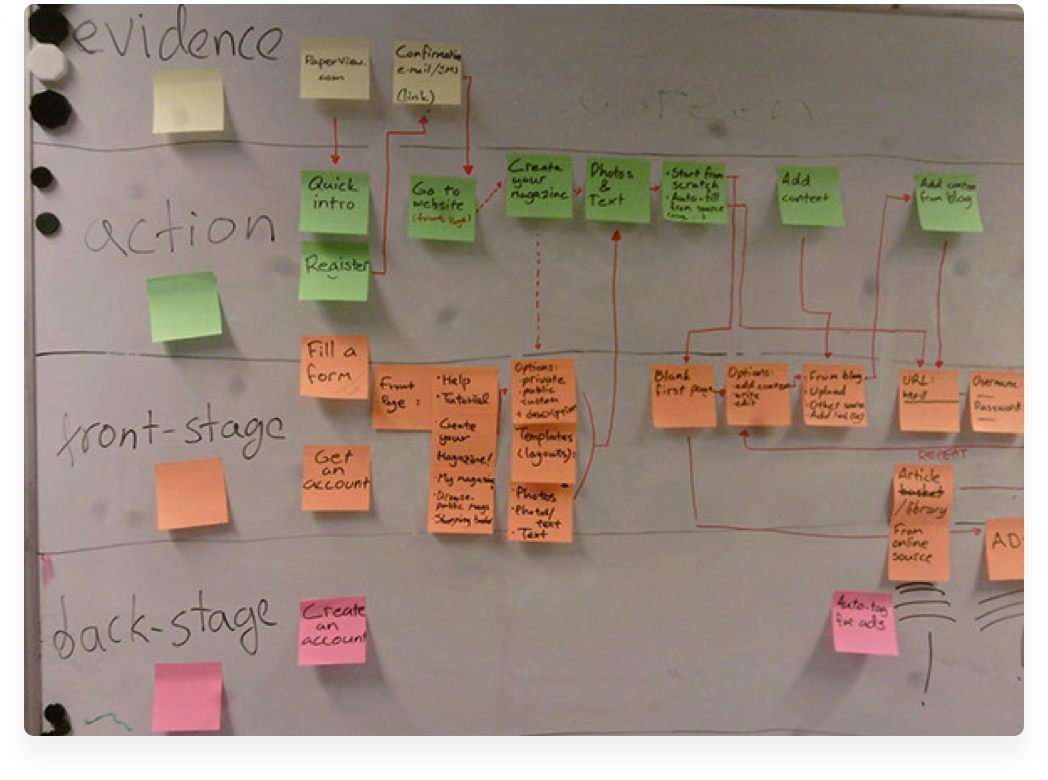 evidence
PaperView.
com
Confirmation
e-mail/SMS
(link)
Screen
action
Quick
intro
Register
Go to
website
(Front Page)
Create
your
magazine
Photos
&
Text
• Start from
scratch
• Auto-fill
from source
Add
content
Add content
from blog
front-stage
Fill a
form
Get
an
account
Front
Page :
• Help
• Tutorial
• Create
your
Magazine!
• My magazine
• Browse
public mags
Options:
• private
• public
• custom
+ description
Templates
(layouts):
• Photos
• Photo/
text
• Text
Blank
first page
Options:
• add content
• write
• edit
• From blog
• Upload
• Other source
URL:
http://
Username:
Password
REPEAT
Article
basket
/library
From
online
source
AD
back-stage
Create
an
account
Auto-tag
for ads